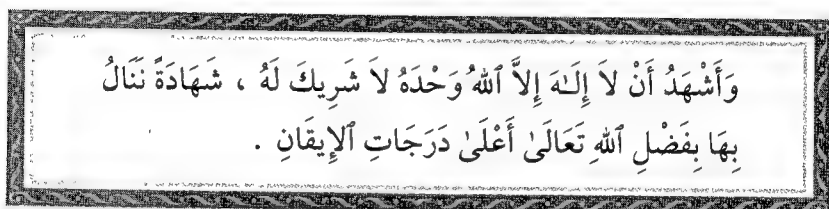 وَأَشْهَدُ أَنْ لاَ إِلَـٰهَ إِلاَّ ٱللهُ وَحْدَهُ لاَ شَرِيكَ لَهُ ، شَهَادَةً نَنَالُ
بِهَا بِفَضْلِ ٱللهِ تَعَالَىٰ أَعْلَىٰ دَرَجَاتِ ٱلإِيقَانِ .